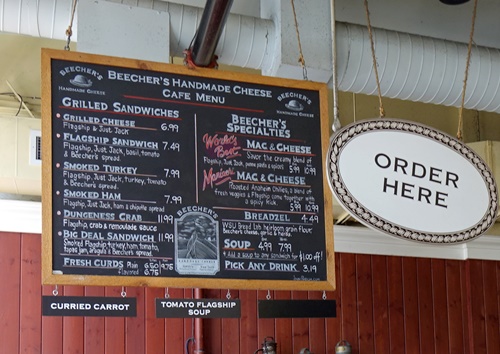 BEECHER'S
HANDMADE CHEESE
BEECHER'S HANDMADE CHEESE
CAFE MENU
BEECHER'S
HANDMADE CHEESE
GRILLED SANDWICHES
GRILLED CHEESE 6.99
Flagship & Just Jack
FLAGSHIP SANDWICH 7.49
Flagship, Just Jack, basil, tomato
& Beecher's spread
SMOKED TURKEY 7.99
Flagship, Just Jack, turkey, tomato
& Beecher's spread
SMOKED HAM 7.99
Flagship, Just Jack, ham & chipotle spread
DUNGENESS CRAB 11.99
Flagship, crab & remoulade sauce
BIG DEAL SANDWICH 11.99
Smoked Flagship, turkey, ham, tomato,
FRESH CURDS Plain 6.50
Flavored 6.75
BEECHER'S
SPECIALTIES
World's Best MAC & CHEESE
Flagship, Just Jack, penne pasta & spices
5.99 10.99
Mariachi MAC & CHEESE
Roasted Anaheim chiles, a blend of
fresh veggies & Flagship come together with
a spicy kick
5.99 10.99
BREADZEL 4.49
Beecher's cheese, garlic & herbs
SOUP 4.99 7.99
Add a soup to any sandwich for $1.00 off!
PICK ANY DRINK 3.19
BEECHER'S
ORDER
HERE
CURRIED CARROT
TOMATO FLAGSHIP
SOUP